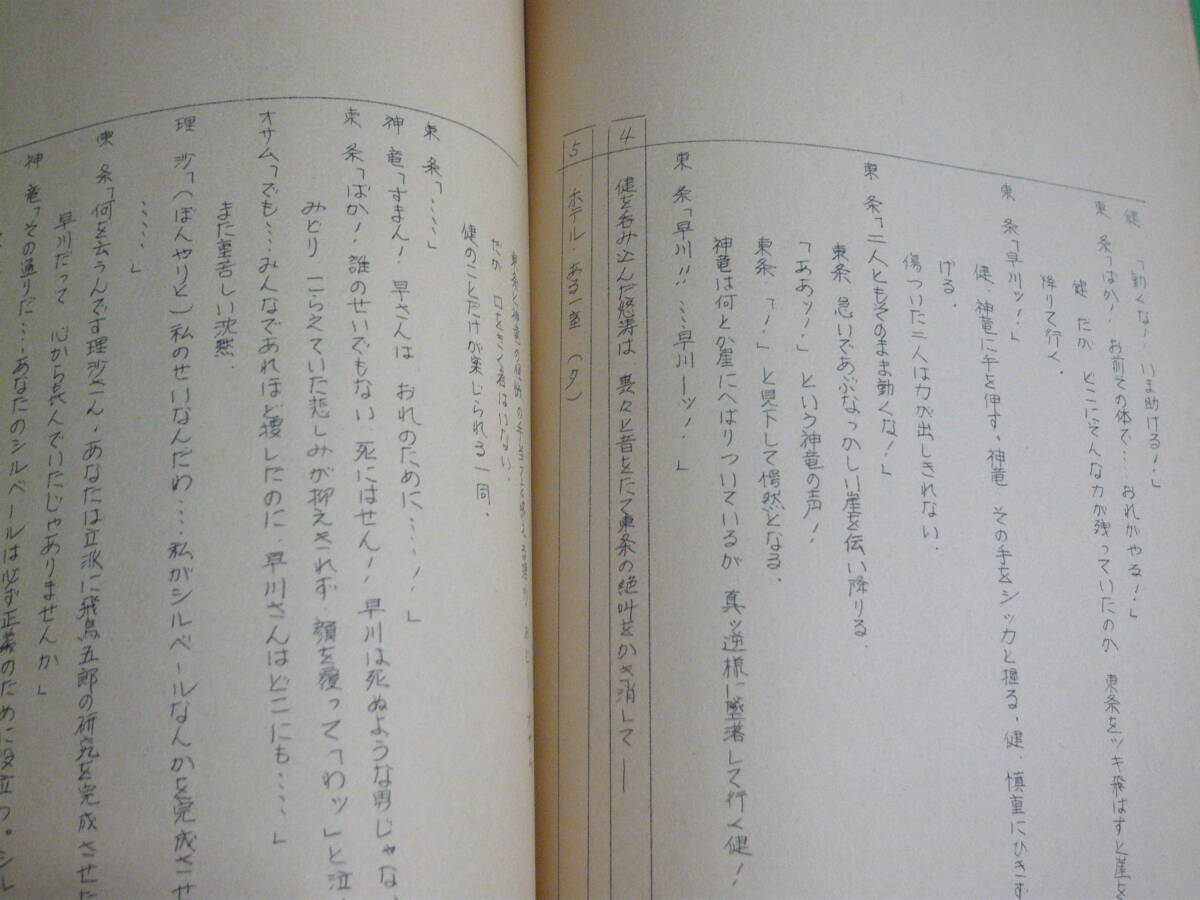 健 「動くな！いま助ける！」
東 条「ばか！お前その体で…おれがやる！」
健 だが どこにそんな力が残っていたのか 東条をツキ飛ばすと崖を
降りて行く．
東 条「早川ッ！」
健、神竜に手を伸す。神竜 その手をシッカと握る．健 慎重にひきず
げる．
傷ついた二人は力が出しきれない．
東 条「二人ともそのまま動くな！」
東条 急いであぶなっかしい崖を伝い降りる
「ああッ！」という神竜の声！
東条「！」と見下して愕然となる．
神竜は何とか崖にへばりついているが 真ッ逆様に墜落して行く健！
東 条「早川!!……早川ーッ！」
4 健を呑み込んだ怒涛は 轟々と音をたて東条の絶叫をかき消して ―
5 ホテル・ある一室（夕）
東条と神竜の
だが 口をきく者はいない．
健のことだけが案じられる一同．
東 条「……」
神 竜「すまん！早さんは おれのために……！」
東 条「ばか！誰のせいでもない 死にはせん！早川は死ぬような男じゃな
みどり こらえていた悲しみが抑えきれず 顔を覆って「わッ」と泣
オサム「でも……みんなであれほど捜したのに 早川さんはどこにも……」
また重苦しい沈黙．
理 沙「（ぼんやりと）私のせいなんだわ……私がシルベールなんかを完成させ
……」
東 条「何を云うんです理沙さん．あなたは立派に飛鳥五郎の研究を完成させた
早川だって 心から喜んでいたじゃありませんか」
神 竜「その通りだ……あなたのシルベールは必ず正義のために役立つ。シル